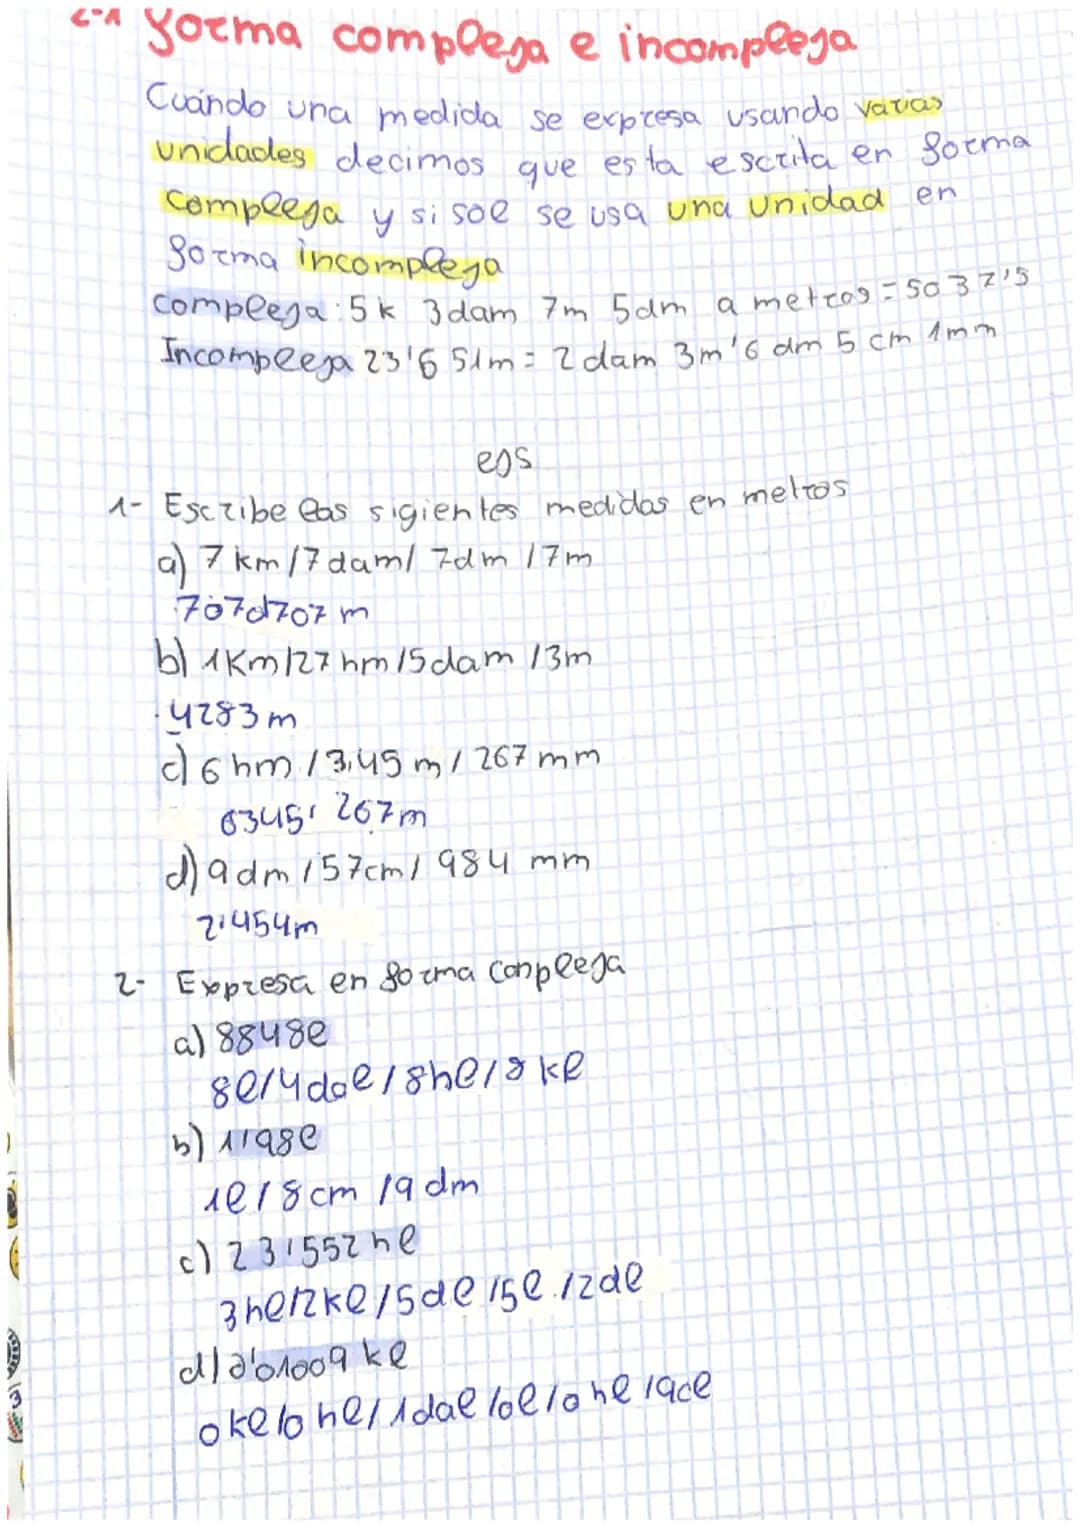 2-1 forma compleja e incompleja
Cuándo una medida se expresa usando varias
unidades decimos que esta escrita en forma
compleja y si sol se usa una unidad en
forma incompleja
compleja: 5k 3dam 7m 5dm a metros = 5037'5
Incompleja 23'651m = 2dam 3m'6 dm 5 cm 1mm
ejs
1- Escribe las sigientes medidas en metros
a) 7 km/7dam/ 7dm /7m
b) 1Km/27 hm/5dam /3m
4283m
c) 6 hm /3,45 m/ 267 mm
6345' 267m
d) 9dm /57cm/ 984 mm
2'454m
2- Expresa en forma conpleja
a) 8848l
8l/4dal/8hl/8 kl
b) 1'198l
1l/8cm /9dm
c) 23'552hl
3hl/2kl/5dl/5l/2dl
d) 0'01009 kl
0kl/0 hl/1dal/0l/0 hl/9cl